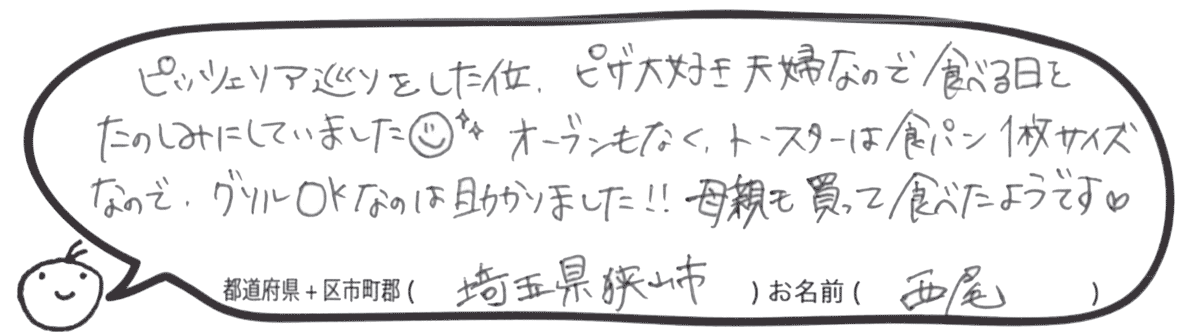 ピッツェリア巡りをした位、ピザ大好き夫婦なので食べる日を
たのしみにしていました オーブンもなく、トースターは食パン1枚サイズ
なので、グリルOKなのは助かりました!! 母親も買って食べたようです♡
都道府県+区市町郡( 埼玉県狭山市 )お名前( 西尾 )